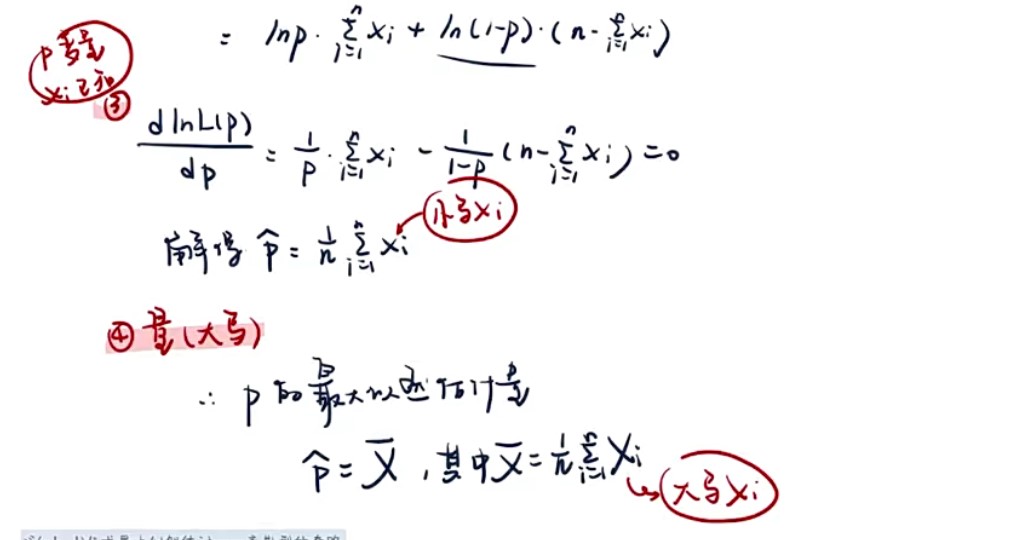 = lnp · ∑_{i=1}^{n} xᵢ + ln(1-p) · (n - ∑_{i=1}^{n} xᵢ)
p变量
xᵢ已知
③
dlnL(p)/dp = 1/p · ∑_{i=1}^{n} xᵢ - 1/(1-p) (n - ∑_{i=1}^{n} xᵢ) = 0
小写xᵢ
解得 p̂ = 1/n ∑_{i=1}^{n} xᵢ
④ 量(大写)
∴ p的最大似然估计量
p̂ = X̄ , 其中 X̄ = 1/n ∑_{i=1}^{n} Xᵢ
大写Xᵢ